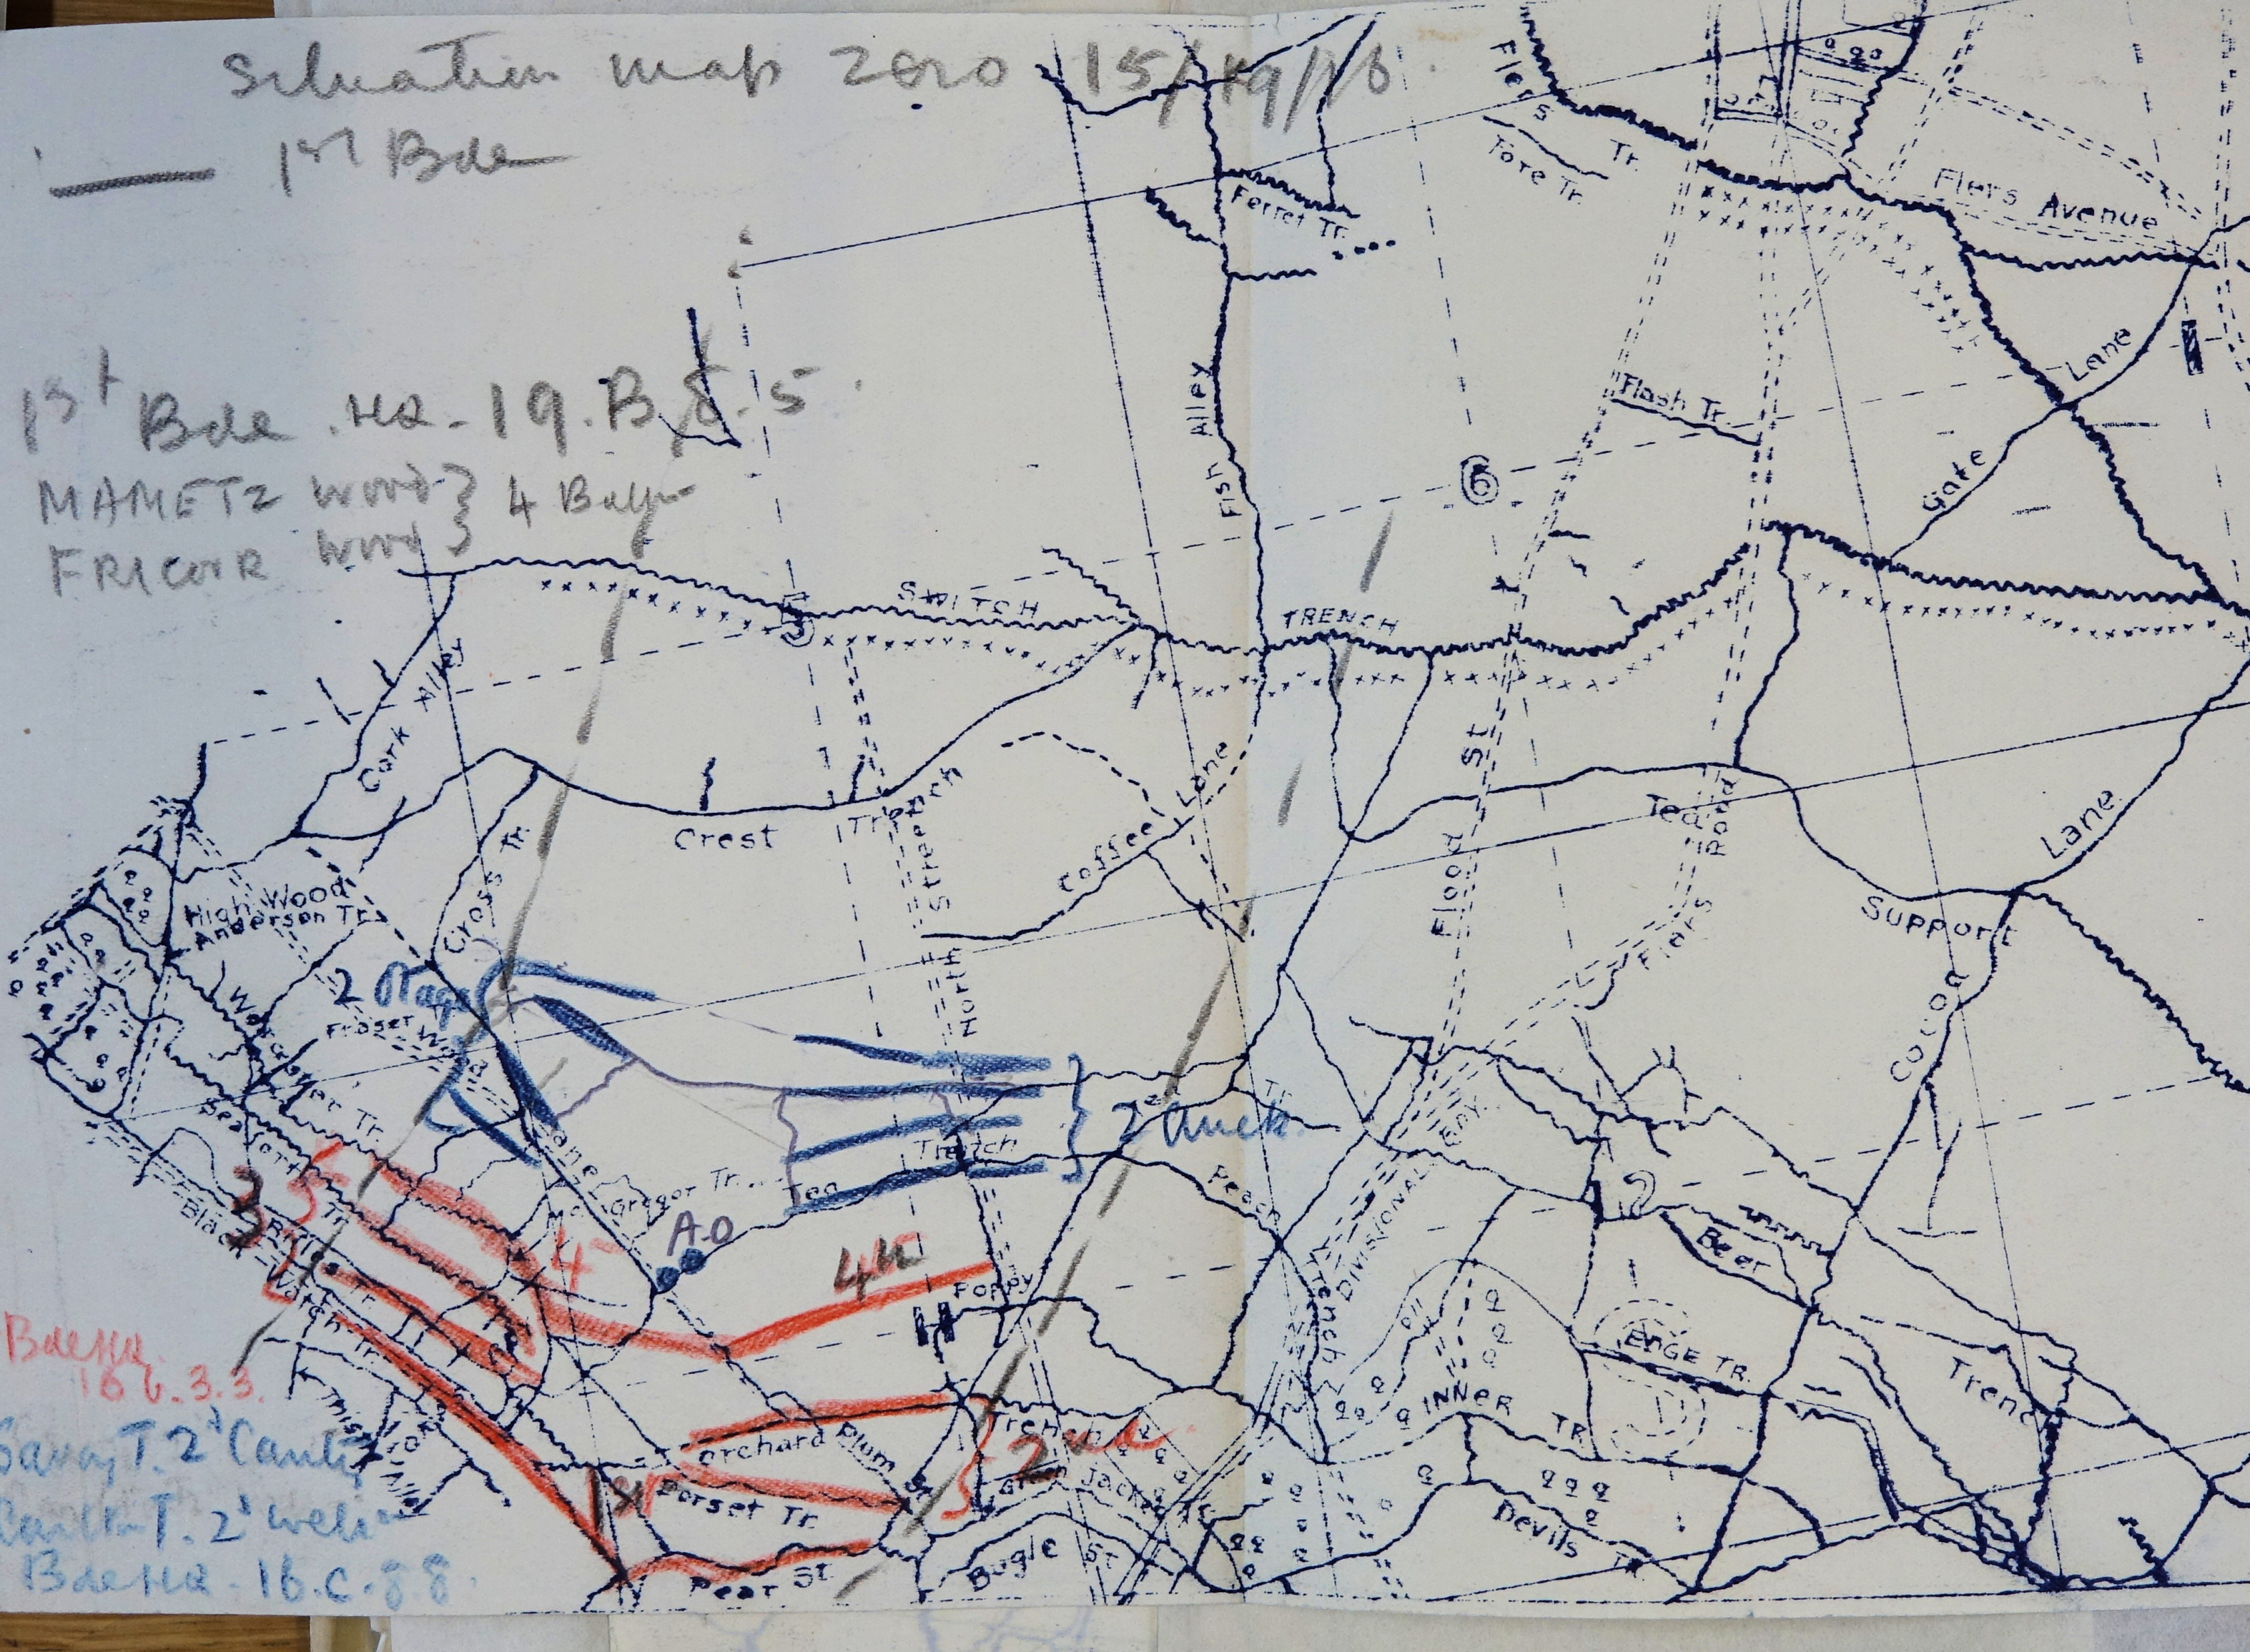 Situation map Zero 15/9/16.
1st Bde
1st Bde .HQ - 19.B.8.5.
MAMETZ Wood } 4 Batns
FRICOUR Wood }
Flers Tr.
Tore Tr.
Flers Avenue
Ferret Tr.
Fish Alley
Flash Tr.
Gate Lane
6
SWITCH TRENCH
5
Cork Alley
Crest Trench
Cross Tr.
North Street
Coffee Lane
Flood St
Tea Support
Flers Road
Cocoa Lane
High Wood
Anderson Tr.
Worcester Tr.
Fraser Tr.
Wood Lane
2 Otago
2 Auck.
Tea Trench
Tea Tr.
Seaforth Tr.
McGregor Tr.
Tea
A.O
Peach Trench
DIVISIONAL
BDY.
12
Beer Trench
3
4
4th
Black Watch Tr.
Rifle Tr.
Poppy
11
EDGE TR.
INNER TR.
Thistle Alley
Bde HQ.
16 b. 3.3.
Savoy T. 2d Canty
Carlton T. 2d Well
Bde HQ - 16.c.8.8.
Orchard Trench
Plum St.
1st
2
Dorset Tr.
Green Jacket
Pear St
Bugle St
Devils Tr.